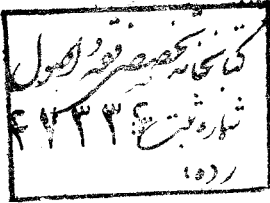 کتابخانه تخصصی فقه و اصول
شماره ثبت: ۴۷۳۳۴
رده: